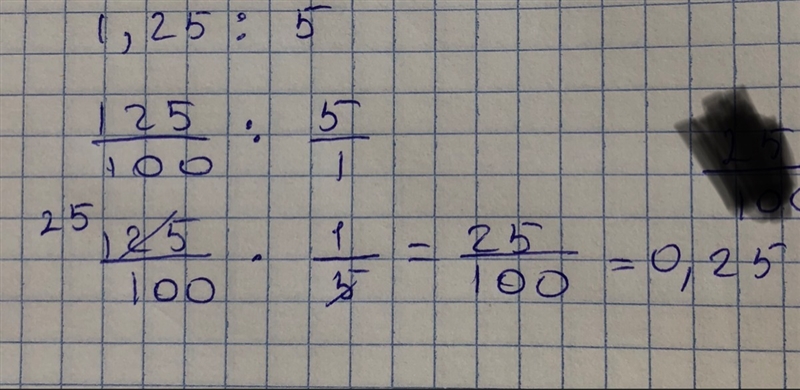 1,25 : 5
125/100 : 5/1
25 125/100 · 1/5 = 25/100 = 0,25
25/100